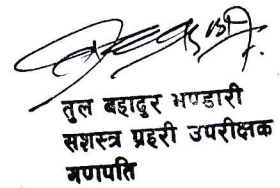 तुल बहादुर भण्डारी
सशस्त्र प्रहरी उपरीक्षक
गणपति